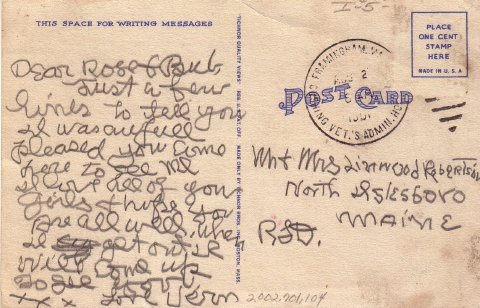 THIS SPACE FOR WRITING MESSAGES
Dear Rose & Bub
Just a few
lines to tell you
I was awfull
pleased you came
here to see me
I love all of you
girls & hope you
are all well. when
I get out I
will come up
to see
x x x Love Vern
"TICHNOR QUALITY VIEWS" REG. U. S. PAT. OFF. MADE ONLY BY TICHNOR BROS. INC. BOSTON, MASS.
I-5-
PLACE
ONE CENT
STAMP
HERE
MADE IN U. S. A
FRAMINGHAM, MA
AUG 2
1951
VET'S. ADMIN. HO
POST CARD
Mr & Mrs Linwood Robertson
North Islesboro
Maine
RFD.
2002.201.104